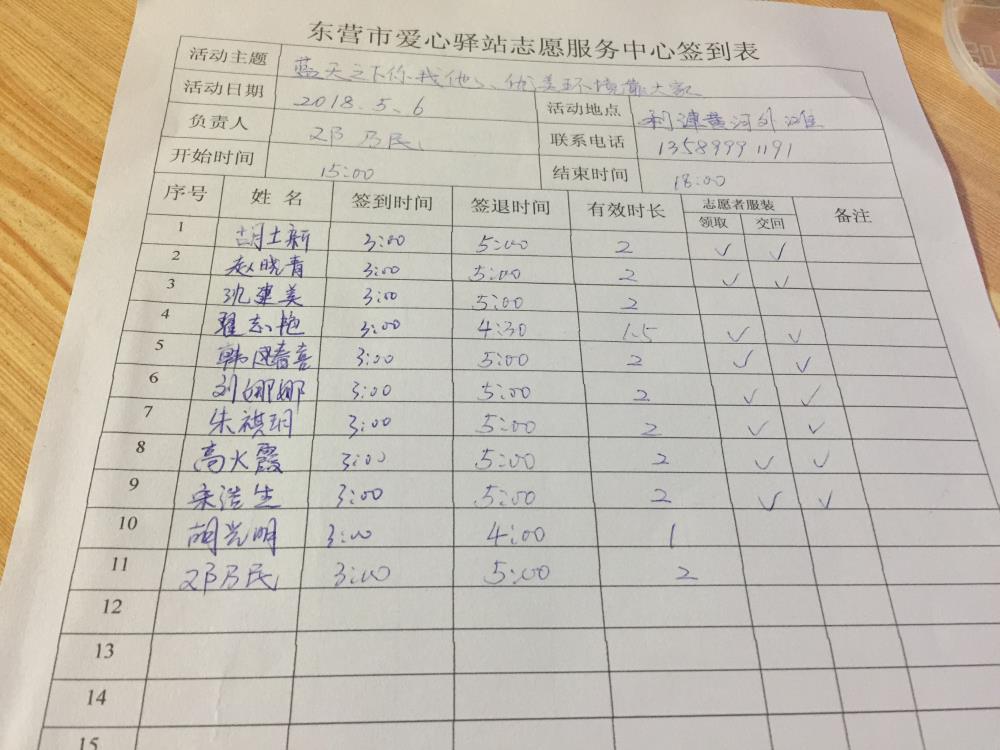 东营市爱心驿站志愿服务中心签到表
活动主题 蓝天之下你我他、优美环境靠大家
活动日期 2018.5.6 活动地点 利津黄河外滩
负责人 邓乃民 联系电话 13589991191
开始时间 15:00 结束时间 18:00
序号 姓名 签到时间 签退时间 有效时长 志愿者服装 备注
领取 交回
1 胡土新 3:00 5:00 2 ✓ ✓
2 赵晓青 3:00 5:00 2 ✓ ✓
3 沈建美 3:00 5:00 2
4 翟志艳 3:00 4:30 1.5 ✓ ✓
5 韩 喜 3:00 5:00 2 ✓ ✓
6 刘娜娜 3:00 5:00 2 ✓ ✓
7 朱祺玥 3:00 5:00 2 ✓ ✓
8 高火霞 3:00 5:00 2 ✓ ✓
9 宋浩生 3:00 5:00 2 ✓ ✓
10 胡光明 3:00 4:00 1
11 邓乃民 3:00 5:00 2
12
13
14
15